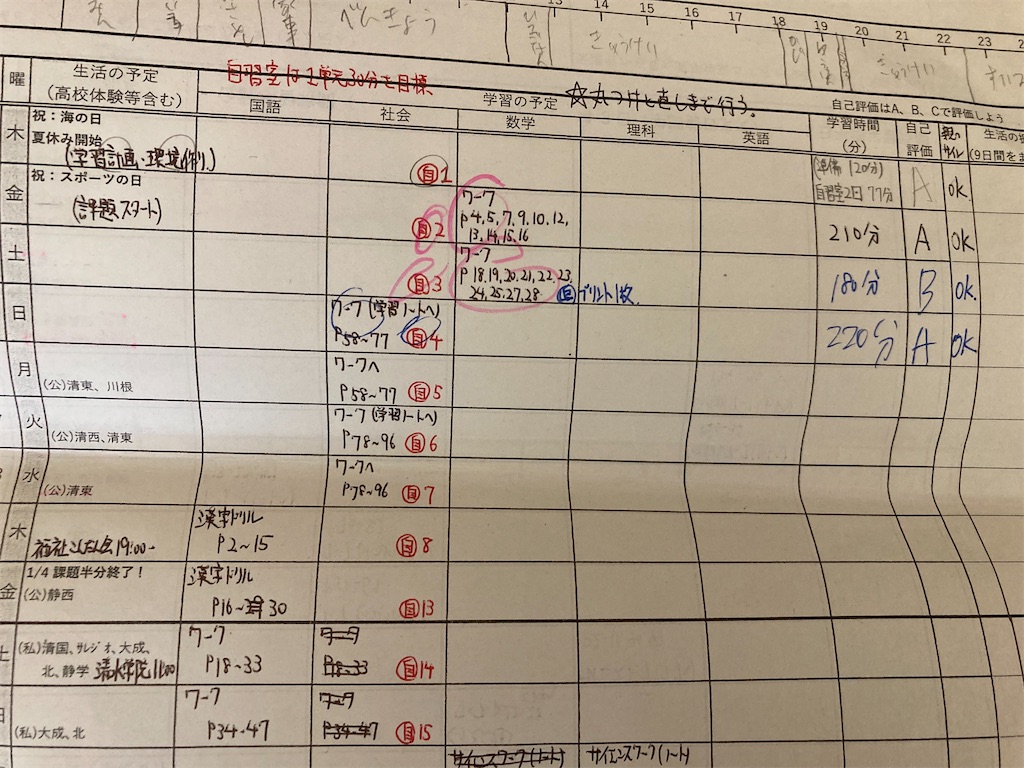 べんきょう
きゅうけい
きゅうけい
13 14 15 16 17 18 19 20 21 22 23
曜 生活の予定 (高校体験等含む)
自習室は1単元30分を目標
学習の予定 ☆丸つけと直しまで行う。
自己評価はA、B、Cで評価しよう
国語 社会 数学 理科 英語
学習時間(分) 自己評価 親のサイン
木 祝：海の日
夏休み開始
(学習計画・環境作り)
自1
(準備 120分)
自習室2日 77分
A ok
金 祝：スポーツの日
(課題スタート)
自2
ワーク
P4,5,7,9,10,12,
13,14,15,16
210分 A ok
土
自3
ワーク
P18,19,20,21,22,23,
24,25,27,28
自プリント1枚
180分 B ok.
日
ワーク(学習ノートへ)
P58~77 自4
220分 A ok
月 (公)清東、川根
ワークへ
P58~77 自5
火 (公)清西、清東
ワーク(学習ノートへ)
P78~96 自6
水 (公)清東
ワークへ
P78~96 自7
木
19:00~
漢字ドリル
P2~15
自8
金 1/4 課題半分終了！
(公)静西
漢字ドリル
P16~30
自13
土 (私)清国、サレジオ、大成、
北、静学 清水学院 11:00
ワーク
P18~33
ワーク
P18~33
自14
日 (私)大成、北
ワーク
P34~47
ワーク
P34~47
自15
サイエンスワーク(ノート) サイエンスワーク(ノート)